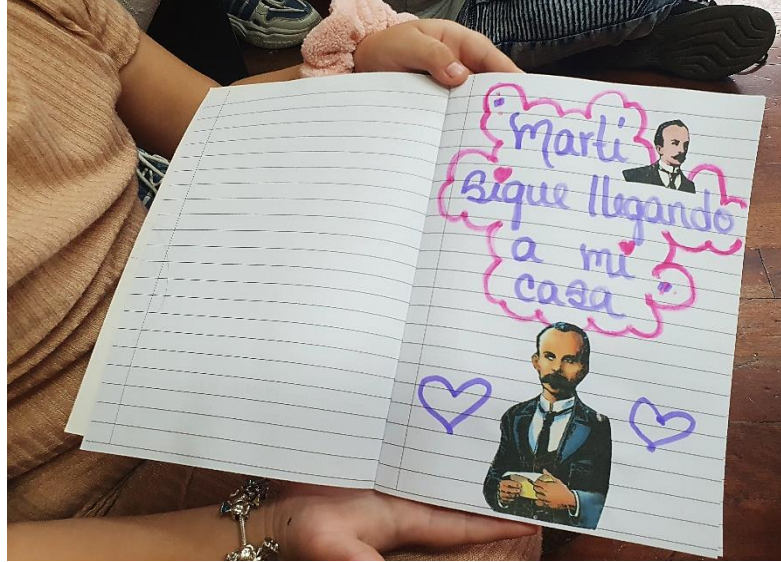 "Marti
sigue llegando
a mi
casa"